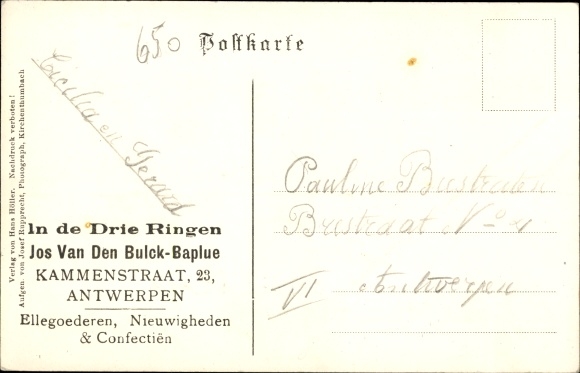 650
Postkarte
Cicilia en Gerard
Verlag von Hans Höller. Nachdruck verboten!
Aufgen. von Josef Rupprecht, Photograph, Kirchenthumbach
In de Drie Ringen
Jos Van Den Bulck-Baplue
KAMMENSTRAAT, 23,
ANTWERPEN
Ellegoederen, Nieuwigheden
& Confectiën
Pauline
Brestraat No
VI Antwerpen